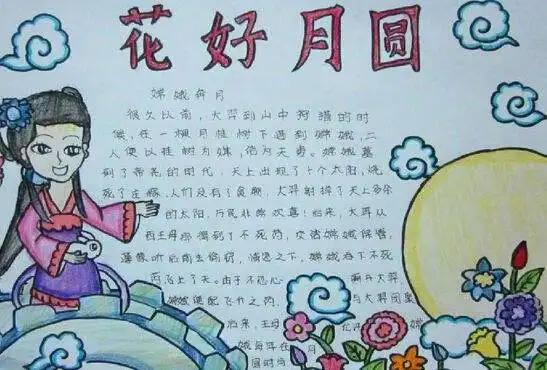 花好月圆
嫦娥奔月
很久以前,大羿到山中狩猎的时
候,在一棵月桂树下遇到嫦娥,二
人便以桂树为媒,结为夫妻。嫦娥
到了帝尧的时代,天上出现了十个太阳,烧
死了庄稼,人们没有了食物,大羿射掉了天上多余
的太阳,万民非常欢喜!后来,大羿从
西王母那得到了不死药,交给嫦娥保管。
听后前去偷窃,情急之下,嫦娥吞下不死
药飞上了天。由于不忍心离开大羿,
嫦娥
与大羿团聚
后来,王母
嫦
娥每年在月
圆时